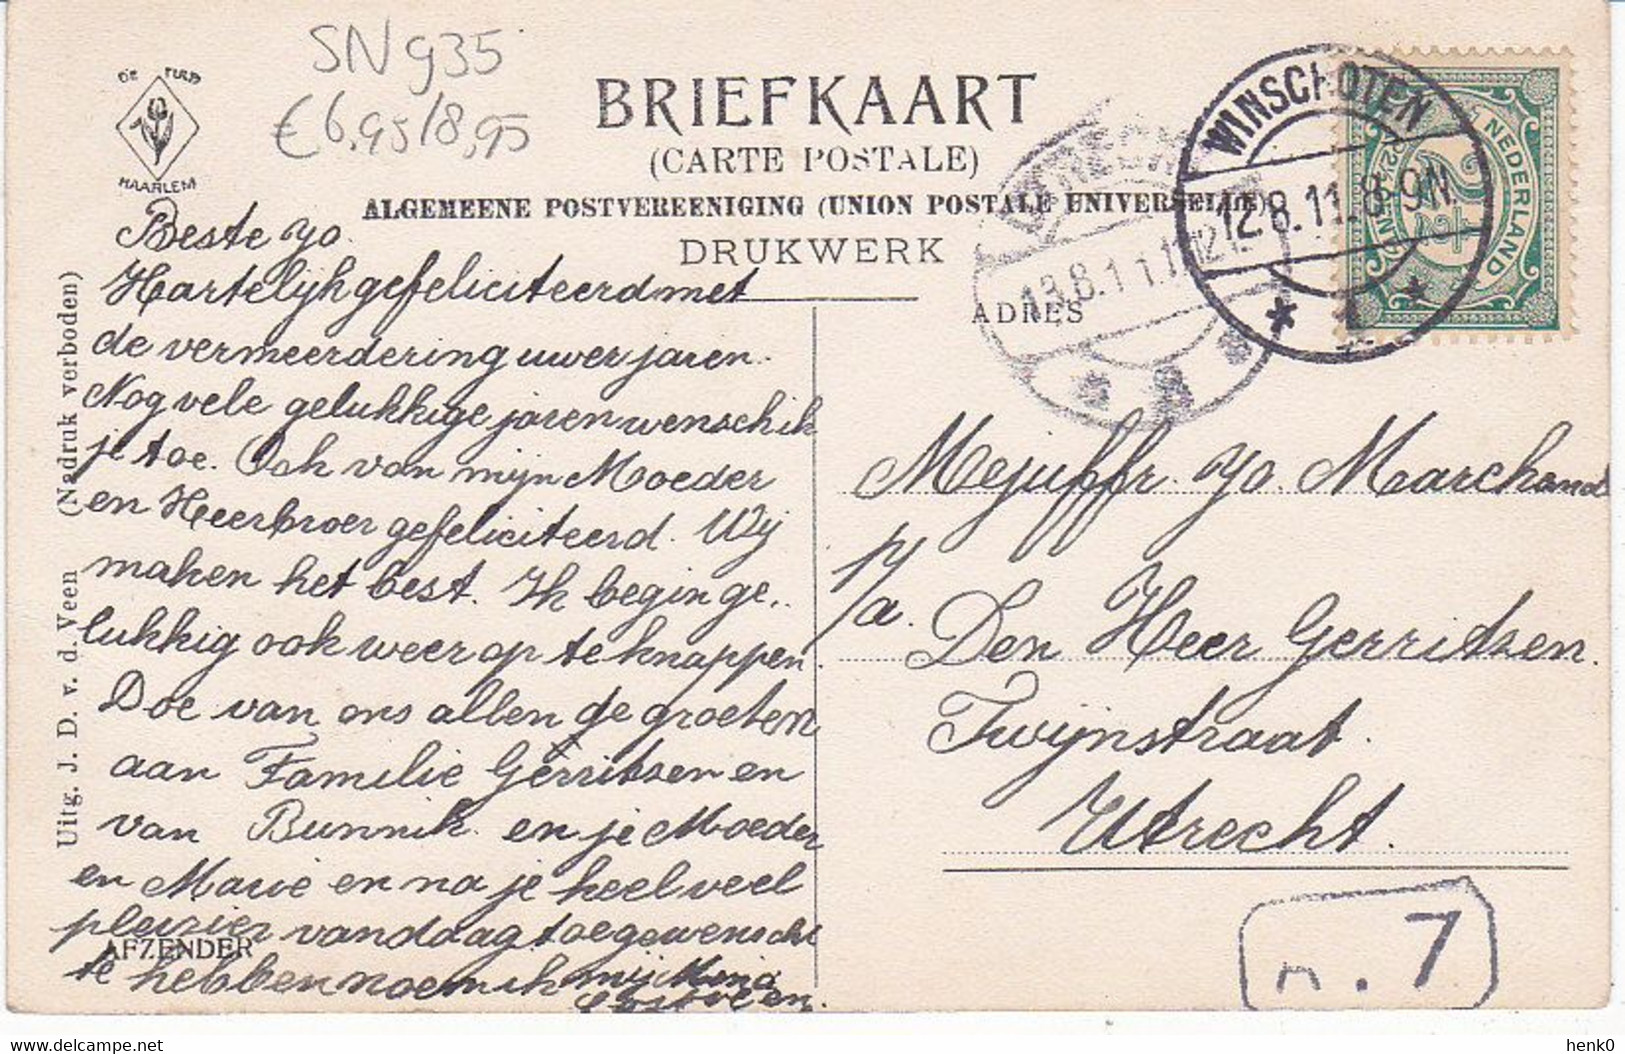 SN 935
€ 6,95/8,95
DE TULP
HAARLEM
BRIEFKAART
(CARTE POSTALE)
ALGEMEENE POSTVEREENIGING (UNION POSTALE UNIVERSELLE)
DRUKWERK
ADRES
WINSCHOTEN
12.8.11.8-9N.
UTRECHT
13.8.11.
NEDERLAND
2½
Uitg. J. D. v. d. Veen (Nadruk verboden)
Beste Jo.
Hartelijk gefeliciteerd met
de vermeerdering uwer jaren.
Nog vele gelukkige jaren wensch ik
je toe. Ook van mijn Moeder
en Heerbroer gefeliciteerd. Wij
maken het best. Ik begin ge..
lukkig ook weer op te knappen.
Doe van ons allen de groeten
aan Familie Gerritsen en
van Bunnik en je Moeder
en Marie en na je heel veel
pleizier vandaag toegewenscht
te hebben noem ik mij
AFZENDER
Mejuffr. Jo. Marchand
p/a. Den Heer Gerritsen.
Twijnstraat.
Utrecht.
n. 7
delcampe.net
henk0